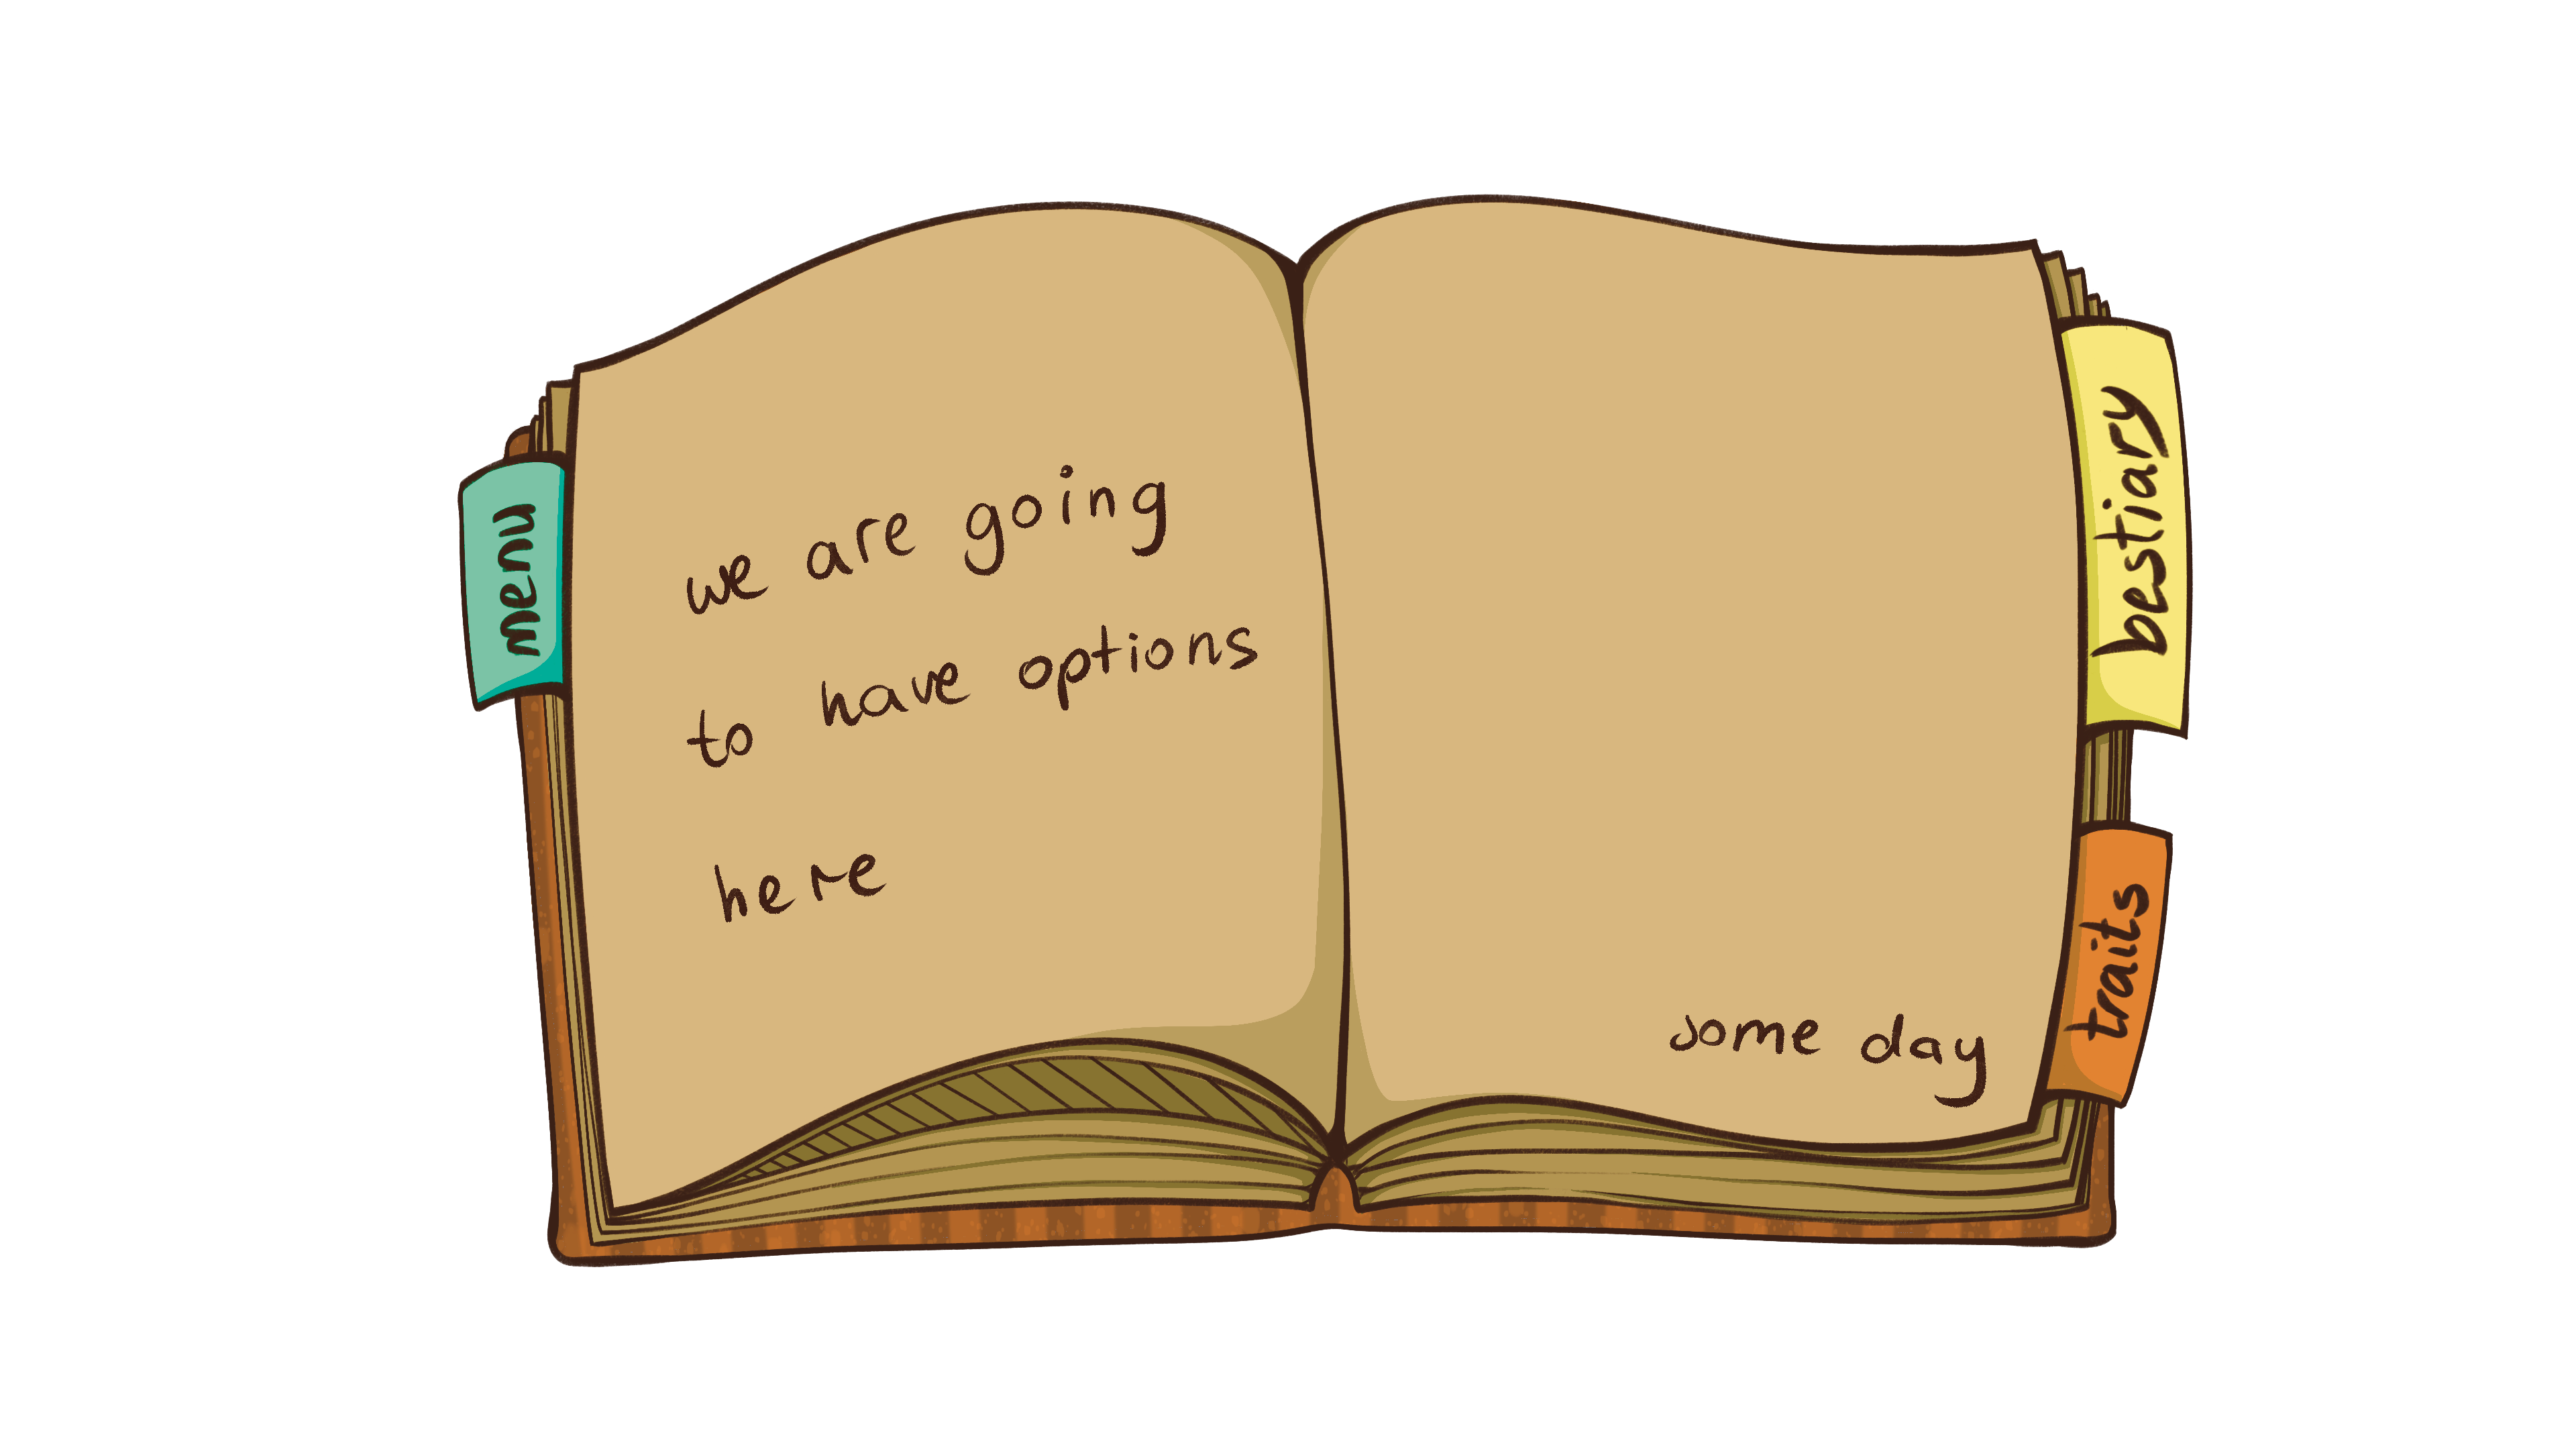 menu
we are going
to have options
here
some day
bestiary
traits